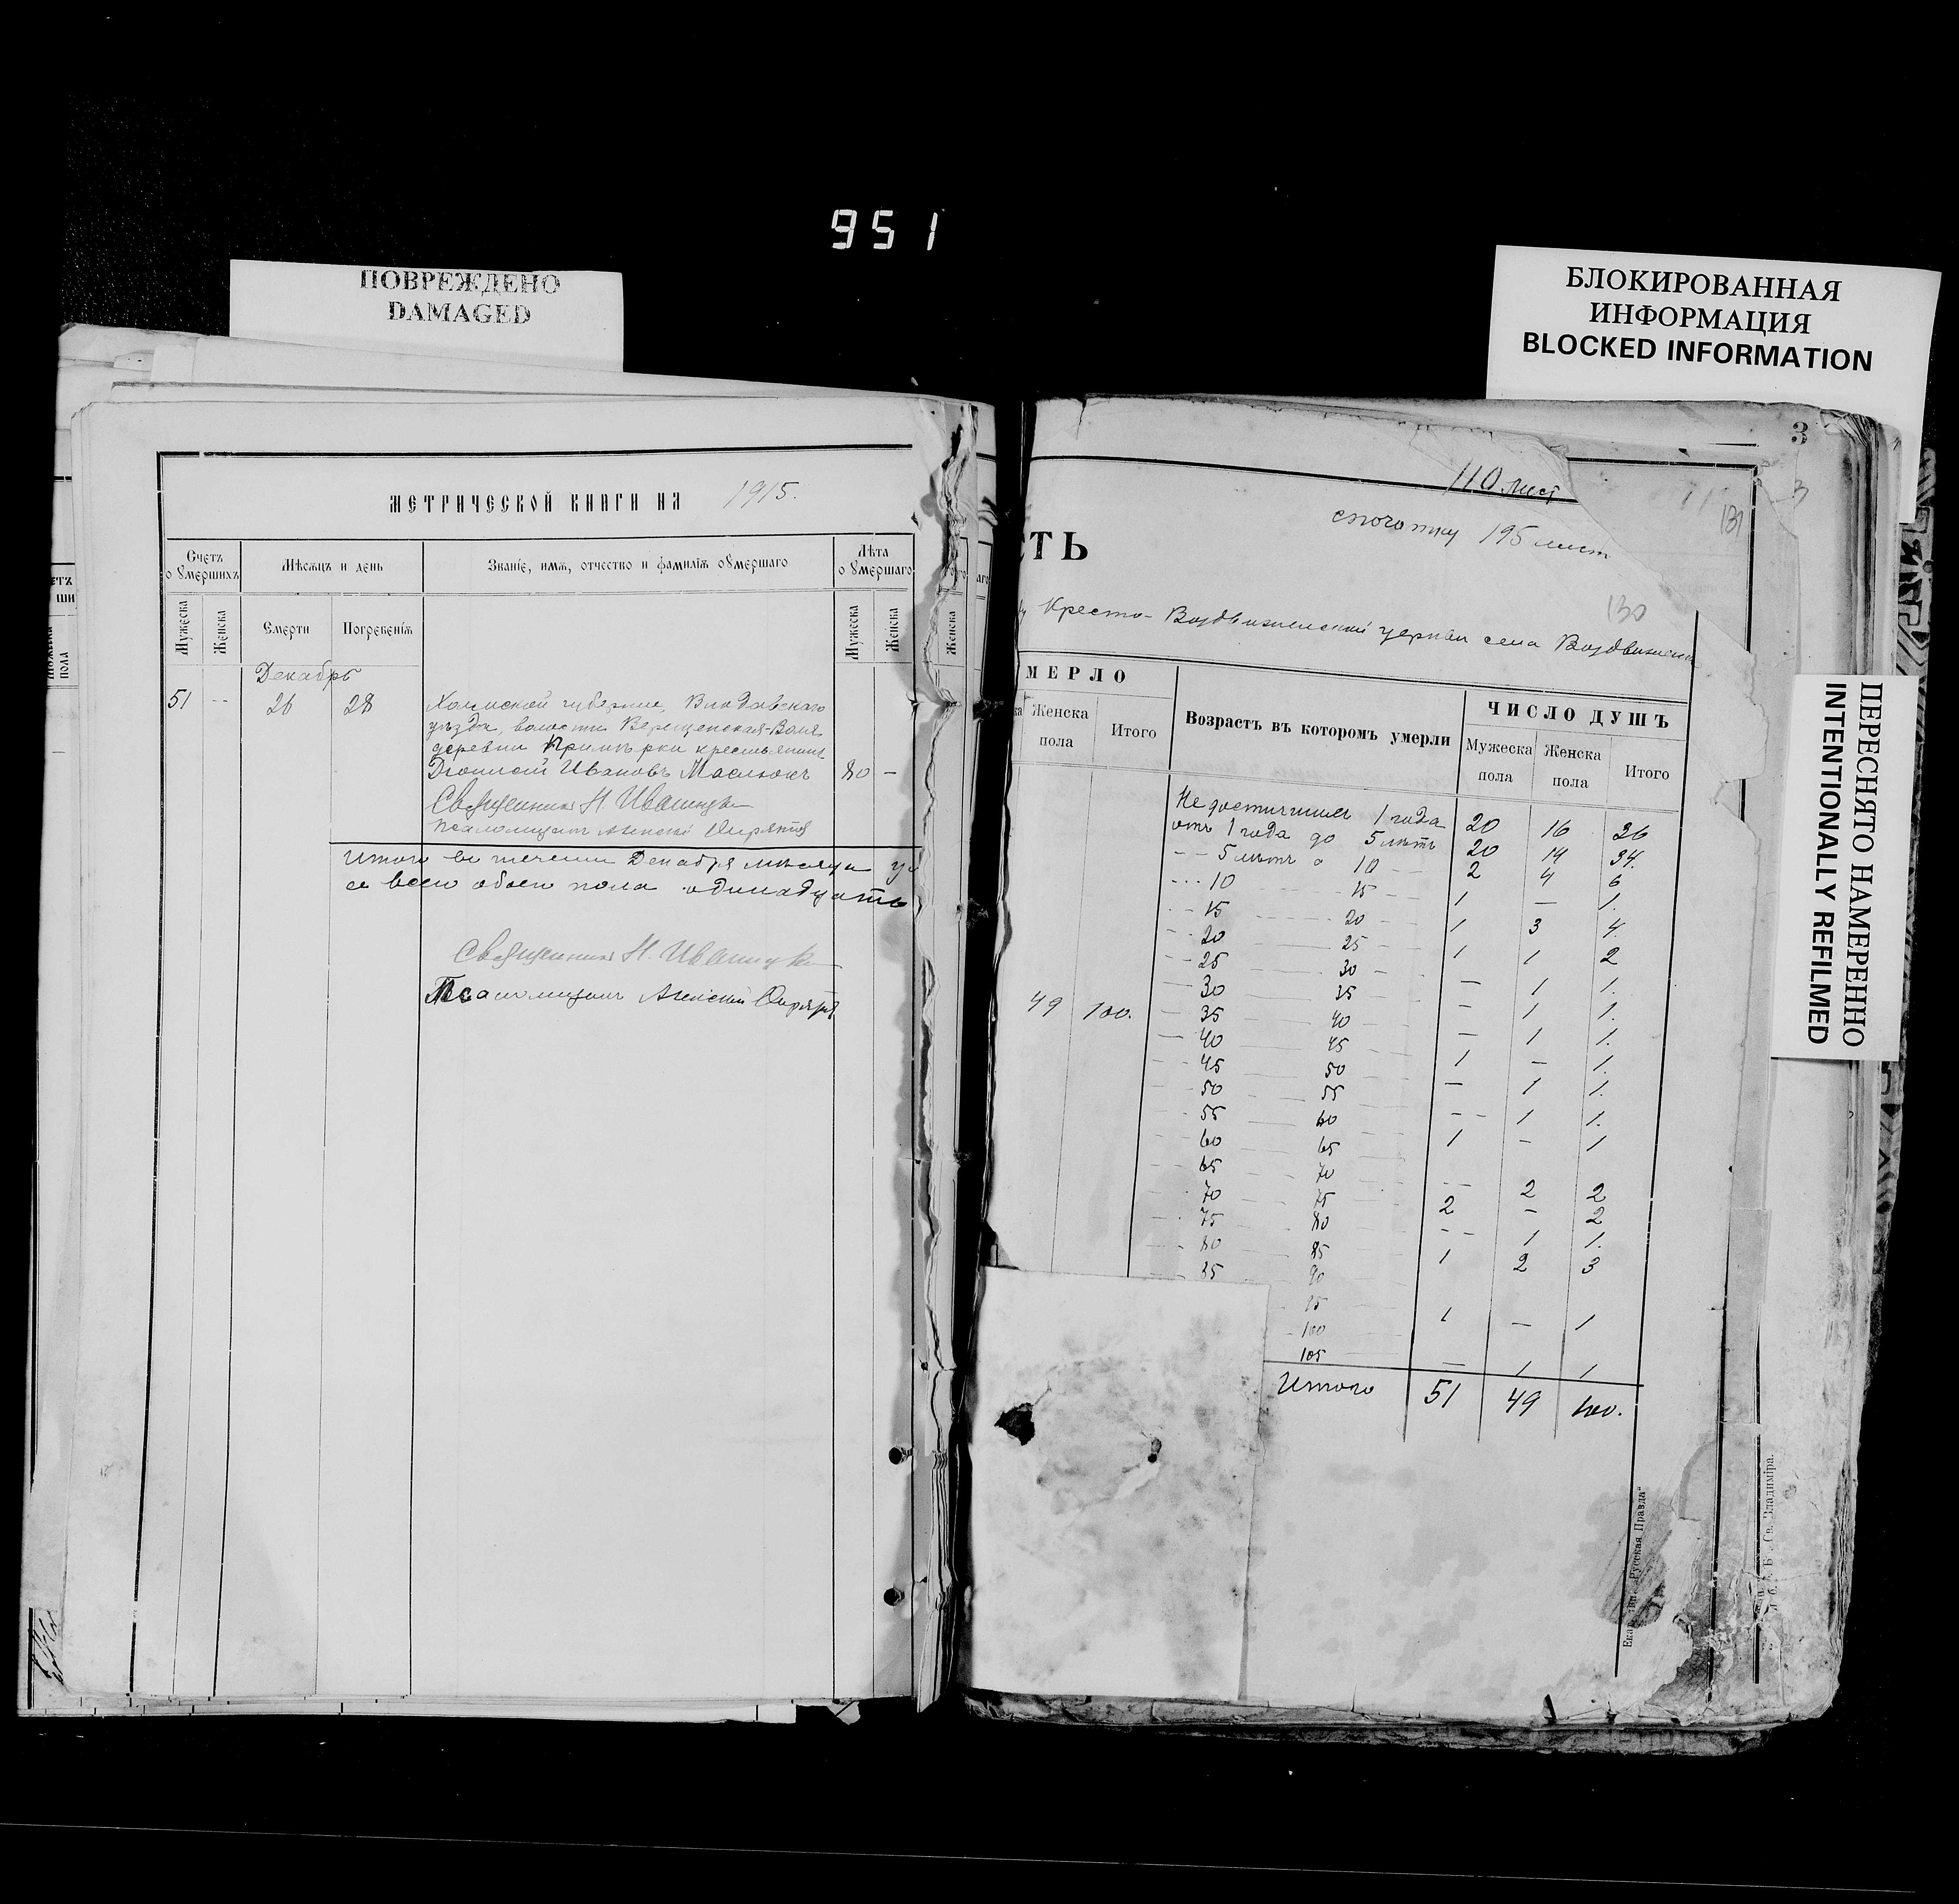 951
ПОВРЕЖДЕНО
DAMAGED
БЛОКИРОВАННАЯ
ИНФОРМАЦИЯ
BLOCKED INFORMATION
ПЕРЕСНЯТО НАМЕРЕННО
INTENTIONALLY REFILMED
МЕТРИЧЕСКОЙ КНИГИ НА 1915.
Счетъ о умершихъ
Мѣсяцъ и день
Званіе, имя, отчество и фамилія умершаго
Лѣта о умершаго
Мужеска
Женска
Смерти
Погребенія
Мужеска
Женска
Декабрь
51 -- 26 28 Холмской губерніи, Влодавскаго
уѣзда, волости Верещенская-Воля
деревни крестьянинъ
Ивановъ Маслюкъ 80 –
Священникъ Н.
Псаломщикъ Алексѣй
Итого въ теченіи Декабря мѣсяца
всего обоего пола одинадцать
Священникъ Н.
Псаломщикъ Алексѣй
3
110 лист
131
195 лист
СТЬ
130
Кресто-Воздвиженской церкви села
МЕРЛО
Женска пола
Итого
Возрастъ въ которомъ умерли
ЧИСЛО ДУШЪ
Мужеска пола
Женска пола
Итого
Не достигшихъ 1 года 20 16 36
отъ 1 года до 5 лѣтъ 20 14 34.
5 лѣтъ 10 2 4 6
10 15 1 — 1.
15 20 1 3 4.
20 25 1 1 2
25 30 — 1 1.
30 35 — 1 1.
49 100. 35 40 — 1 1.
40 45 1 — 1.
45 50 — 1 1.
50 55 -- 1 1.
55 60 1 – 1
60 65
65 70 -- 2 2
70 75 2 – 2
75 80 -- 1 1.
80 85 1 2 3
85 90
95 1 — 1
100
105 — 1 1
Итого 51 49 100.
„Русская Правда“
Св. Владиміра.